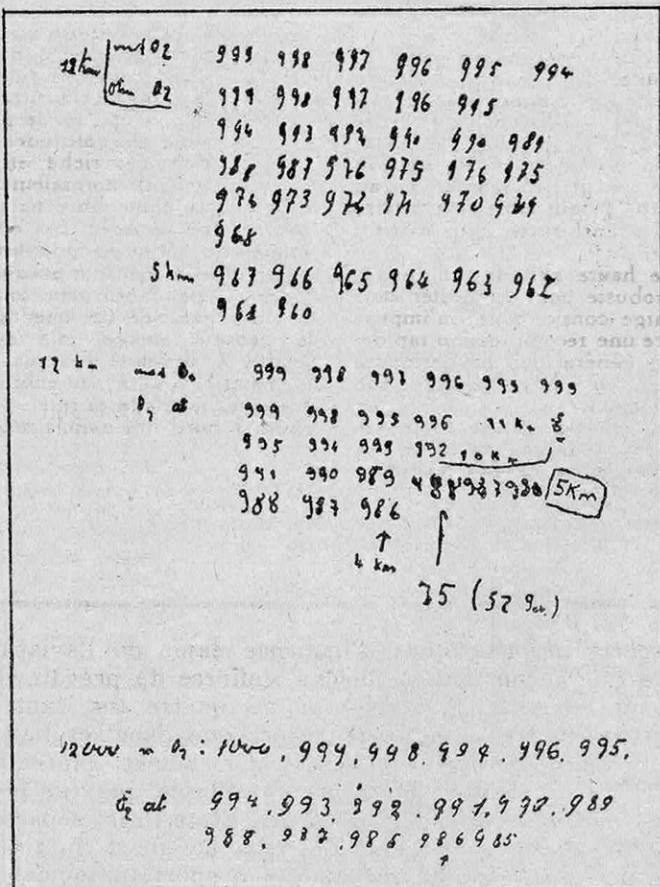 12 km mit O2 999 998 997 996 995 994
ohne O2 999 998 997 996 995
994 993 992 990 990 989
988 987 976 975 976 975
974 973 972 971 970 969
968
5 km 967 966 965 964 963 962
961 960
12 km O2 999 998 997 996 995 995
O2 ab 999 998 995 996 11 km
995 994 993 992 10 km
991 990 989 5 Km
988 987 986
↑
4 km
12000 m O2 : 1000, 999, 998, 997, 996, 995,
O2 ab 994, 993, 992, 991, 990, 989
988, 987, 986 986 985
↑